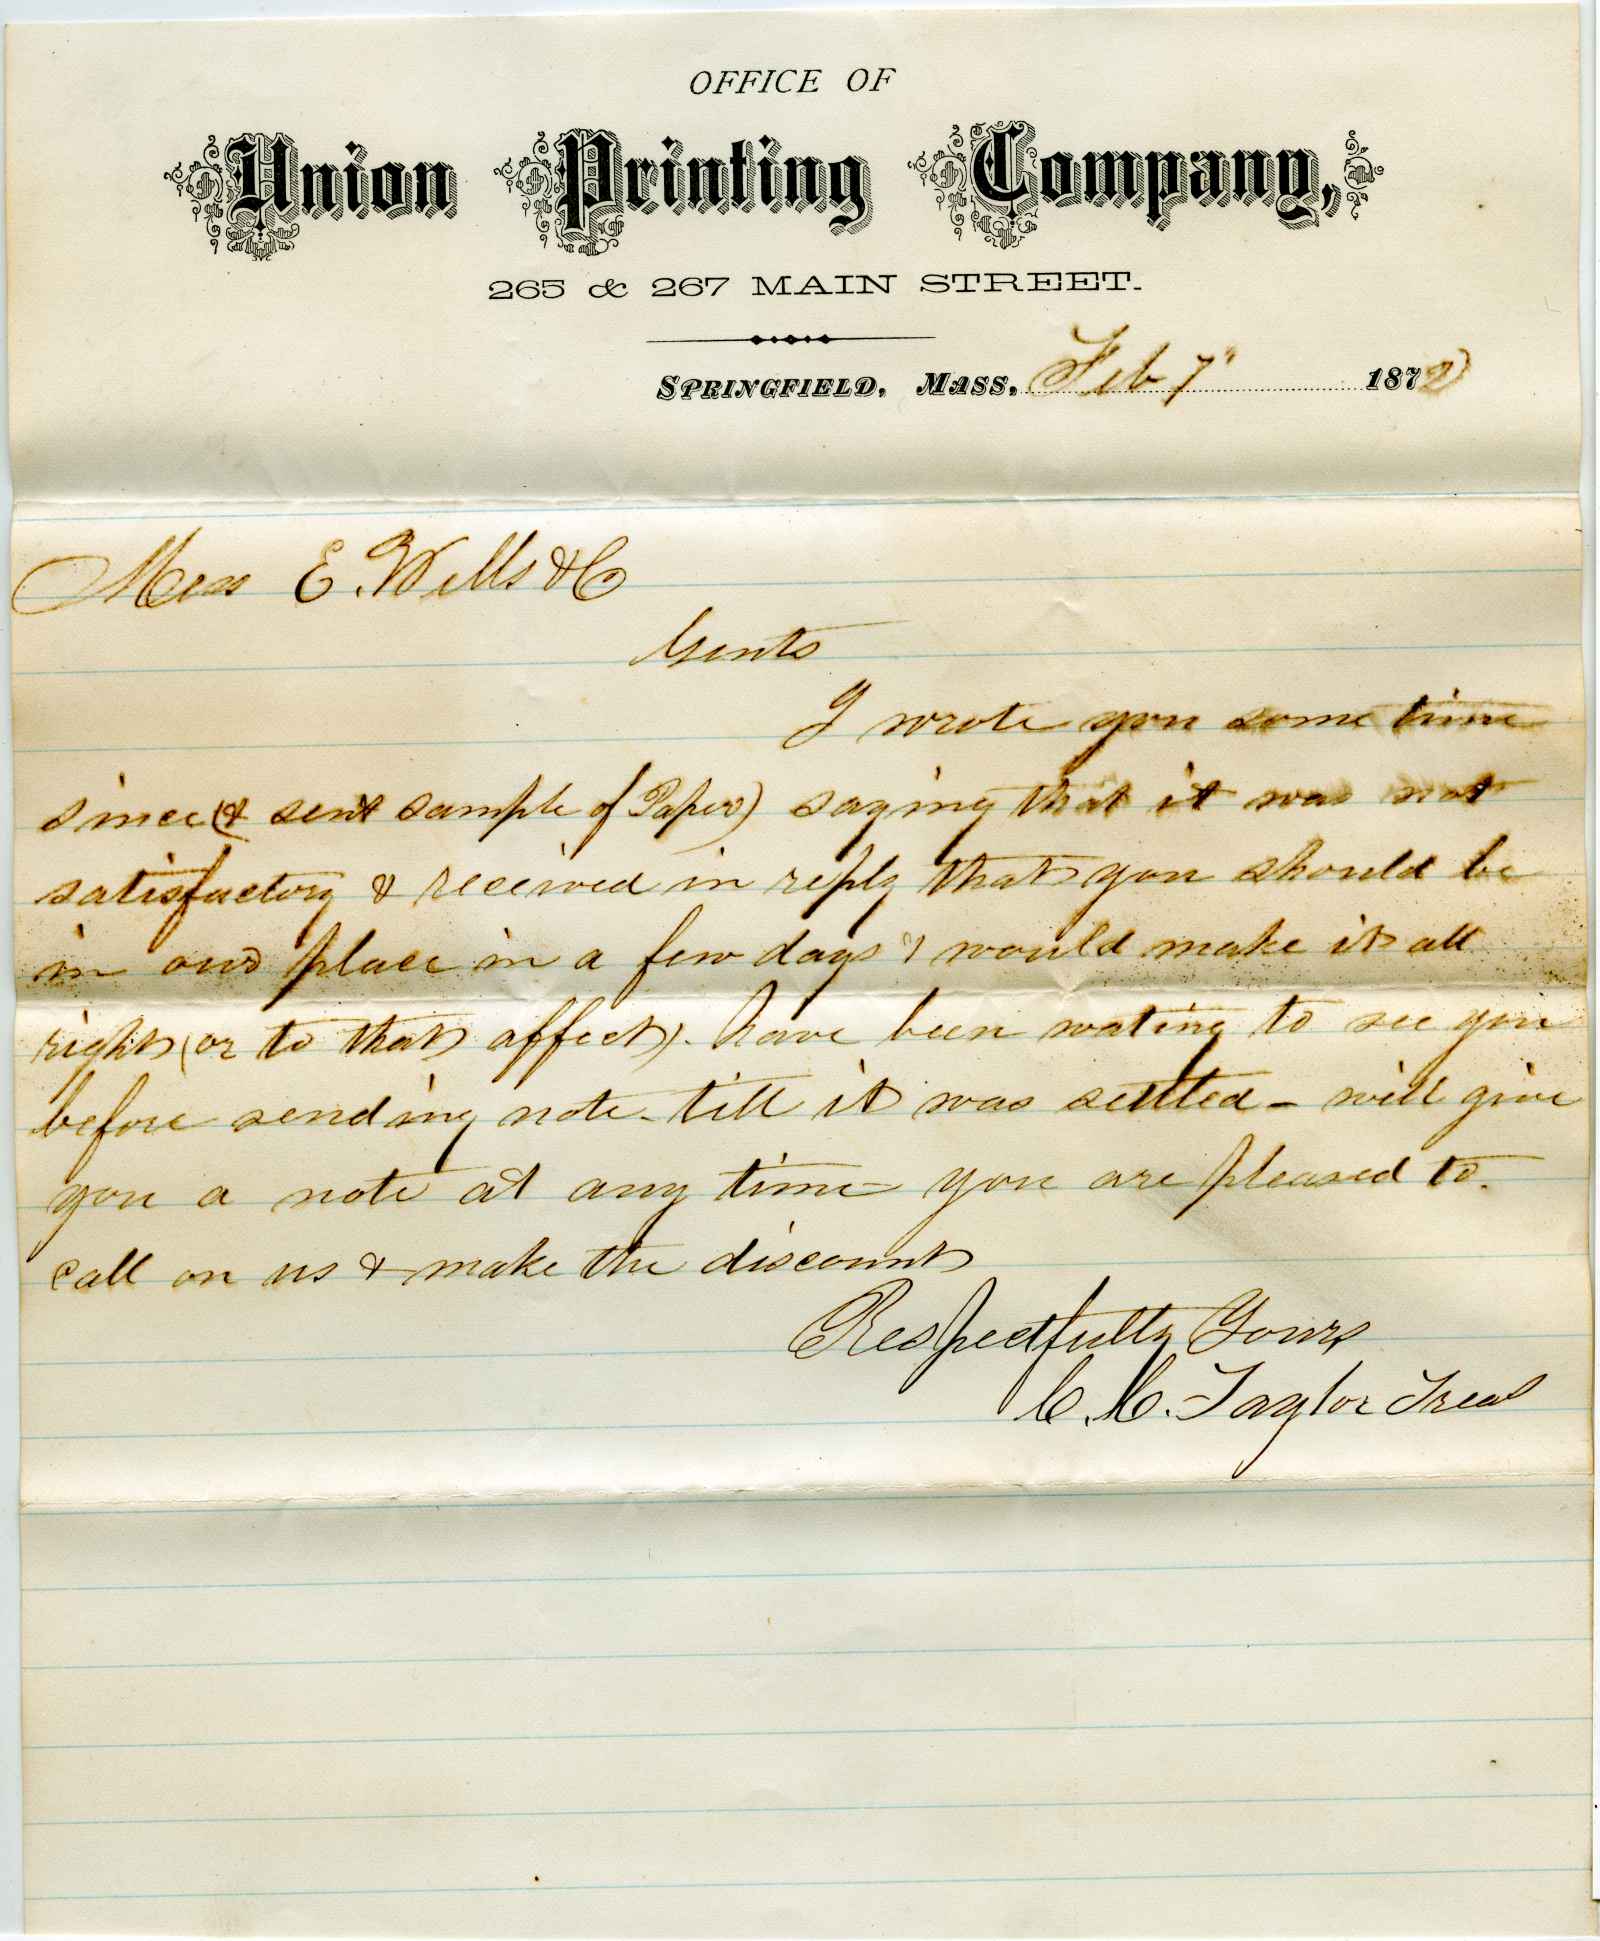 OFFICE OF
Union Printing Company,
265 & 267 MAIN STREET.
SPRINGFIELD, MASS, Feb 7" 1872
Mess E. Wells & Co
Gents
I wrote you some time
since (& sent sample of Paper) saying that it was not
satisfactory & received in reply that you should be
in our place in a few days & would make it all
right (or to that affect). have been wating to see you
before sending note - till it was settled - will give
you a note at any time you are pleased to.
call on us & make the discount
Respectfully Yours
C. C. Taylor Treas